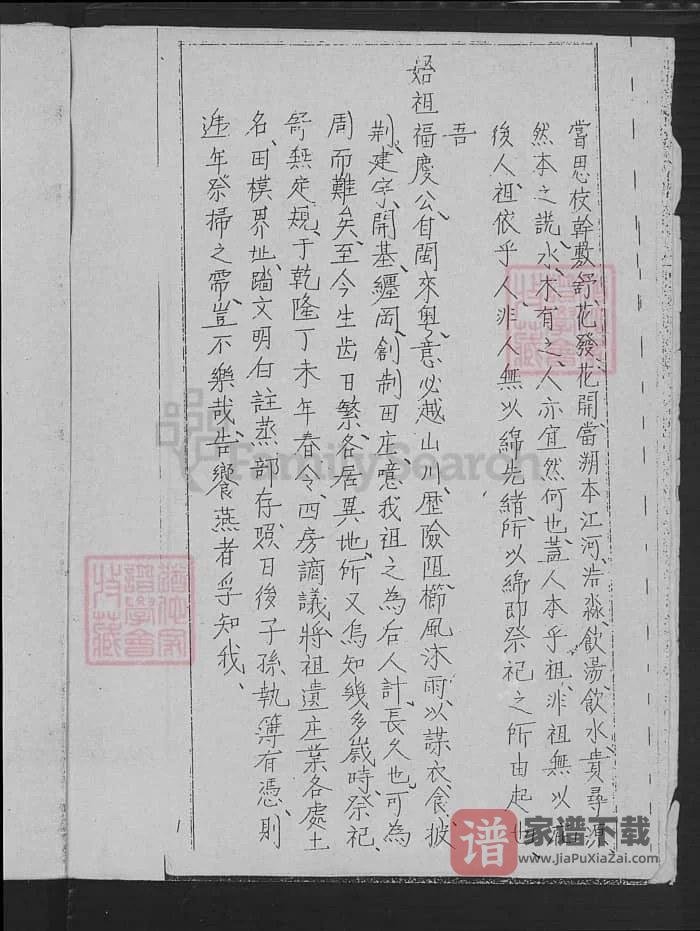 嘗思枝幹敷舒、花發花開、當朔本江河、浩淼、飲湯、飲水貴尋源
然本之說、水木有之、人亦宜然何也、蓋人本乎祖、非祖無以
後人、祖依乎人、非人無以綿先緒所以綿即祭祀之所由起也
吾
始祖福慶公、自閩來粵、意必越山川、歴險阻、櫛風沐雨、以謀衣食、披
荊、建字、開基纒岡、創制田庄、噫我祖之為后人計、長久也、可為
周而難矣、至今生齿日繁、各居異地、所又焉知幾多歲時、祭祀、
舒無定規、于乾隆丁未年春令、四房謪議、將祖遺庄業各處土
名、田模界址、踏文明白註蒸部存、照日後子孫執簿有憑、則
递年祭掃之帶、豈不樂哉、告饗燕者孚知我、
1
FamilySearch
譜
家谱下载
www.JiaPuXiaZai.com